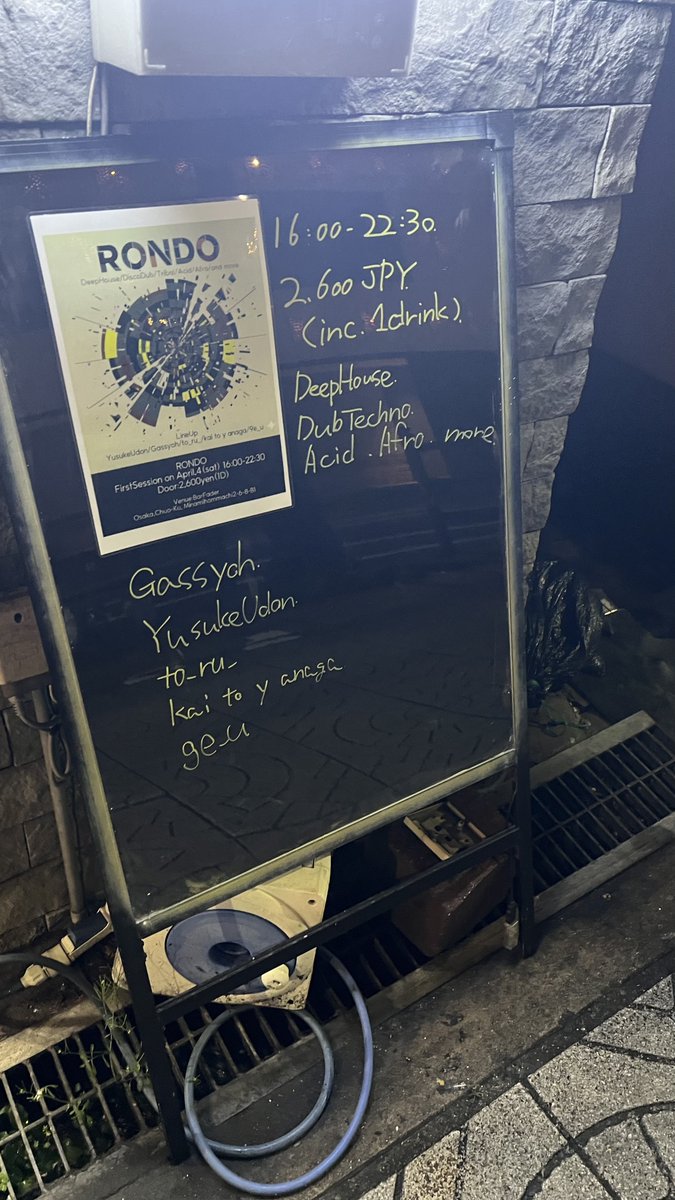 RONDO
DeepHouse/DiscoDub/Tribal/Acid/Afro/and more
LineUp
YusukeUdon/Gassyoh/to_ru_/kai to y anaga/9e_u
RONDO
FirstSession on April.4(sat) 16:00-22:30
Door:2,600yen(1D)
Venue:BarFader
Osaka,Chuo-Ku, Minamihommachi2-6-8-B1
16:00-22:30.
2.600 JPY.
(inc. 1drink).
DeepHouse.
DubTechno.
Acid. Afro. more.
Gassyoh.
YusukeUdon.
to_ru_
kai to y anaga
9e_u